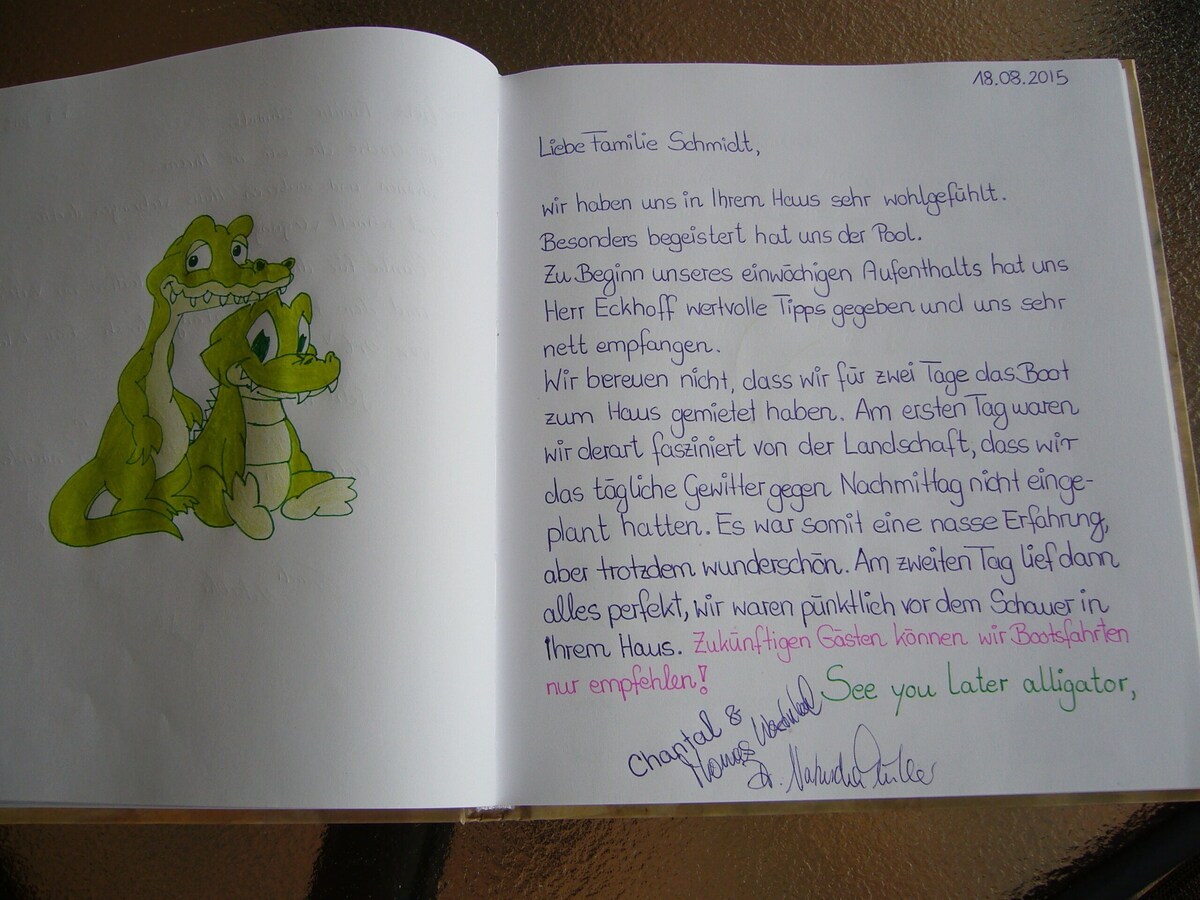 18.08.2015
Liebe Familie Schmidt,
wir haben uns in Ihrem Haus sehr wohlgefühlt.
Besonders begeistert hat uns der Pool.
Zu Beginn unseres einwöchigen Aufenthalts hat uns
Herr Eckhoff wertvolle Tipps gegeben und uns sehr
nett empfangen.
Wir bereuen nicht, dass wir für zwei Tage das Boot
zum Haus gemietet haben. Am ersten Tag waren
wir derart fasziniert von der Landschaft, dass wir
das tägliche Gewitter gegen Nachmittag nicht einge-
plant hatten. Es war somit eine nasse Erfahrung,
aber trotzdem wunderschön. Am zweiten Tag lief dann
alles perfekt, wir waren pünktlich vor dem Schauer in
Ihrem Haus. Zukünftigen Gästen können wir Bootsfahrten
nur empfehlen!
See you later alligator,
Chantal &